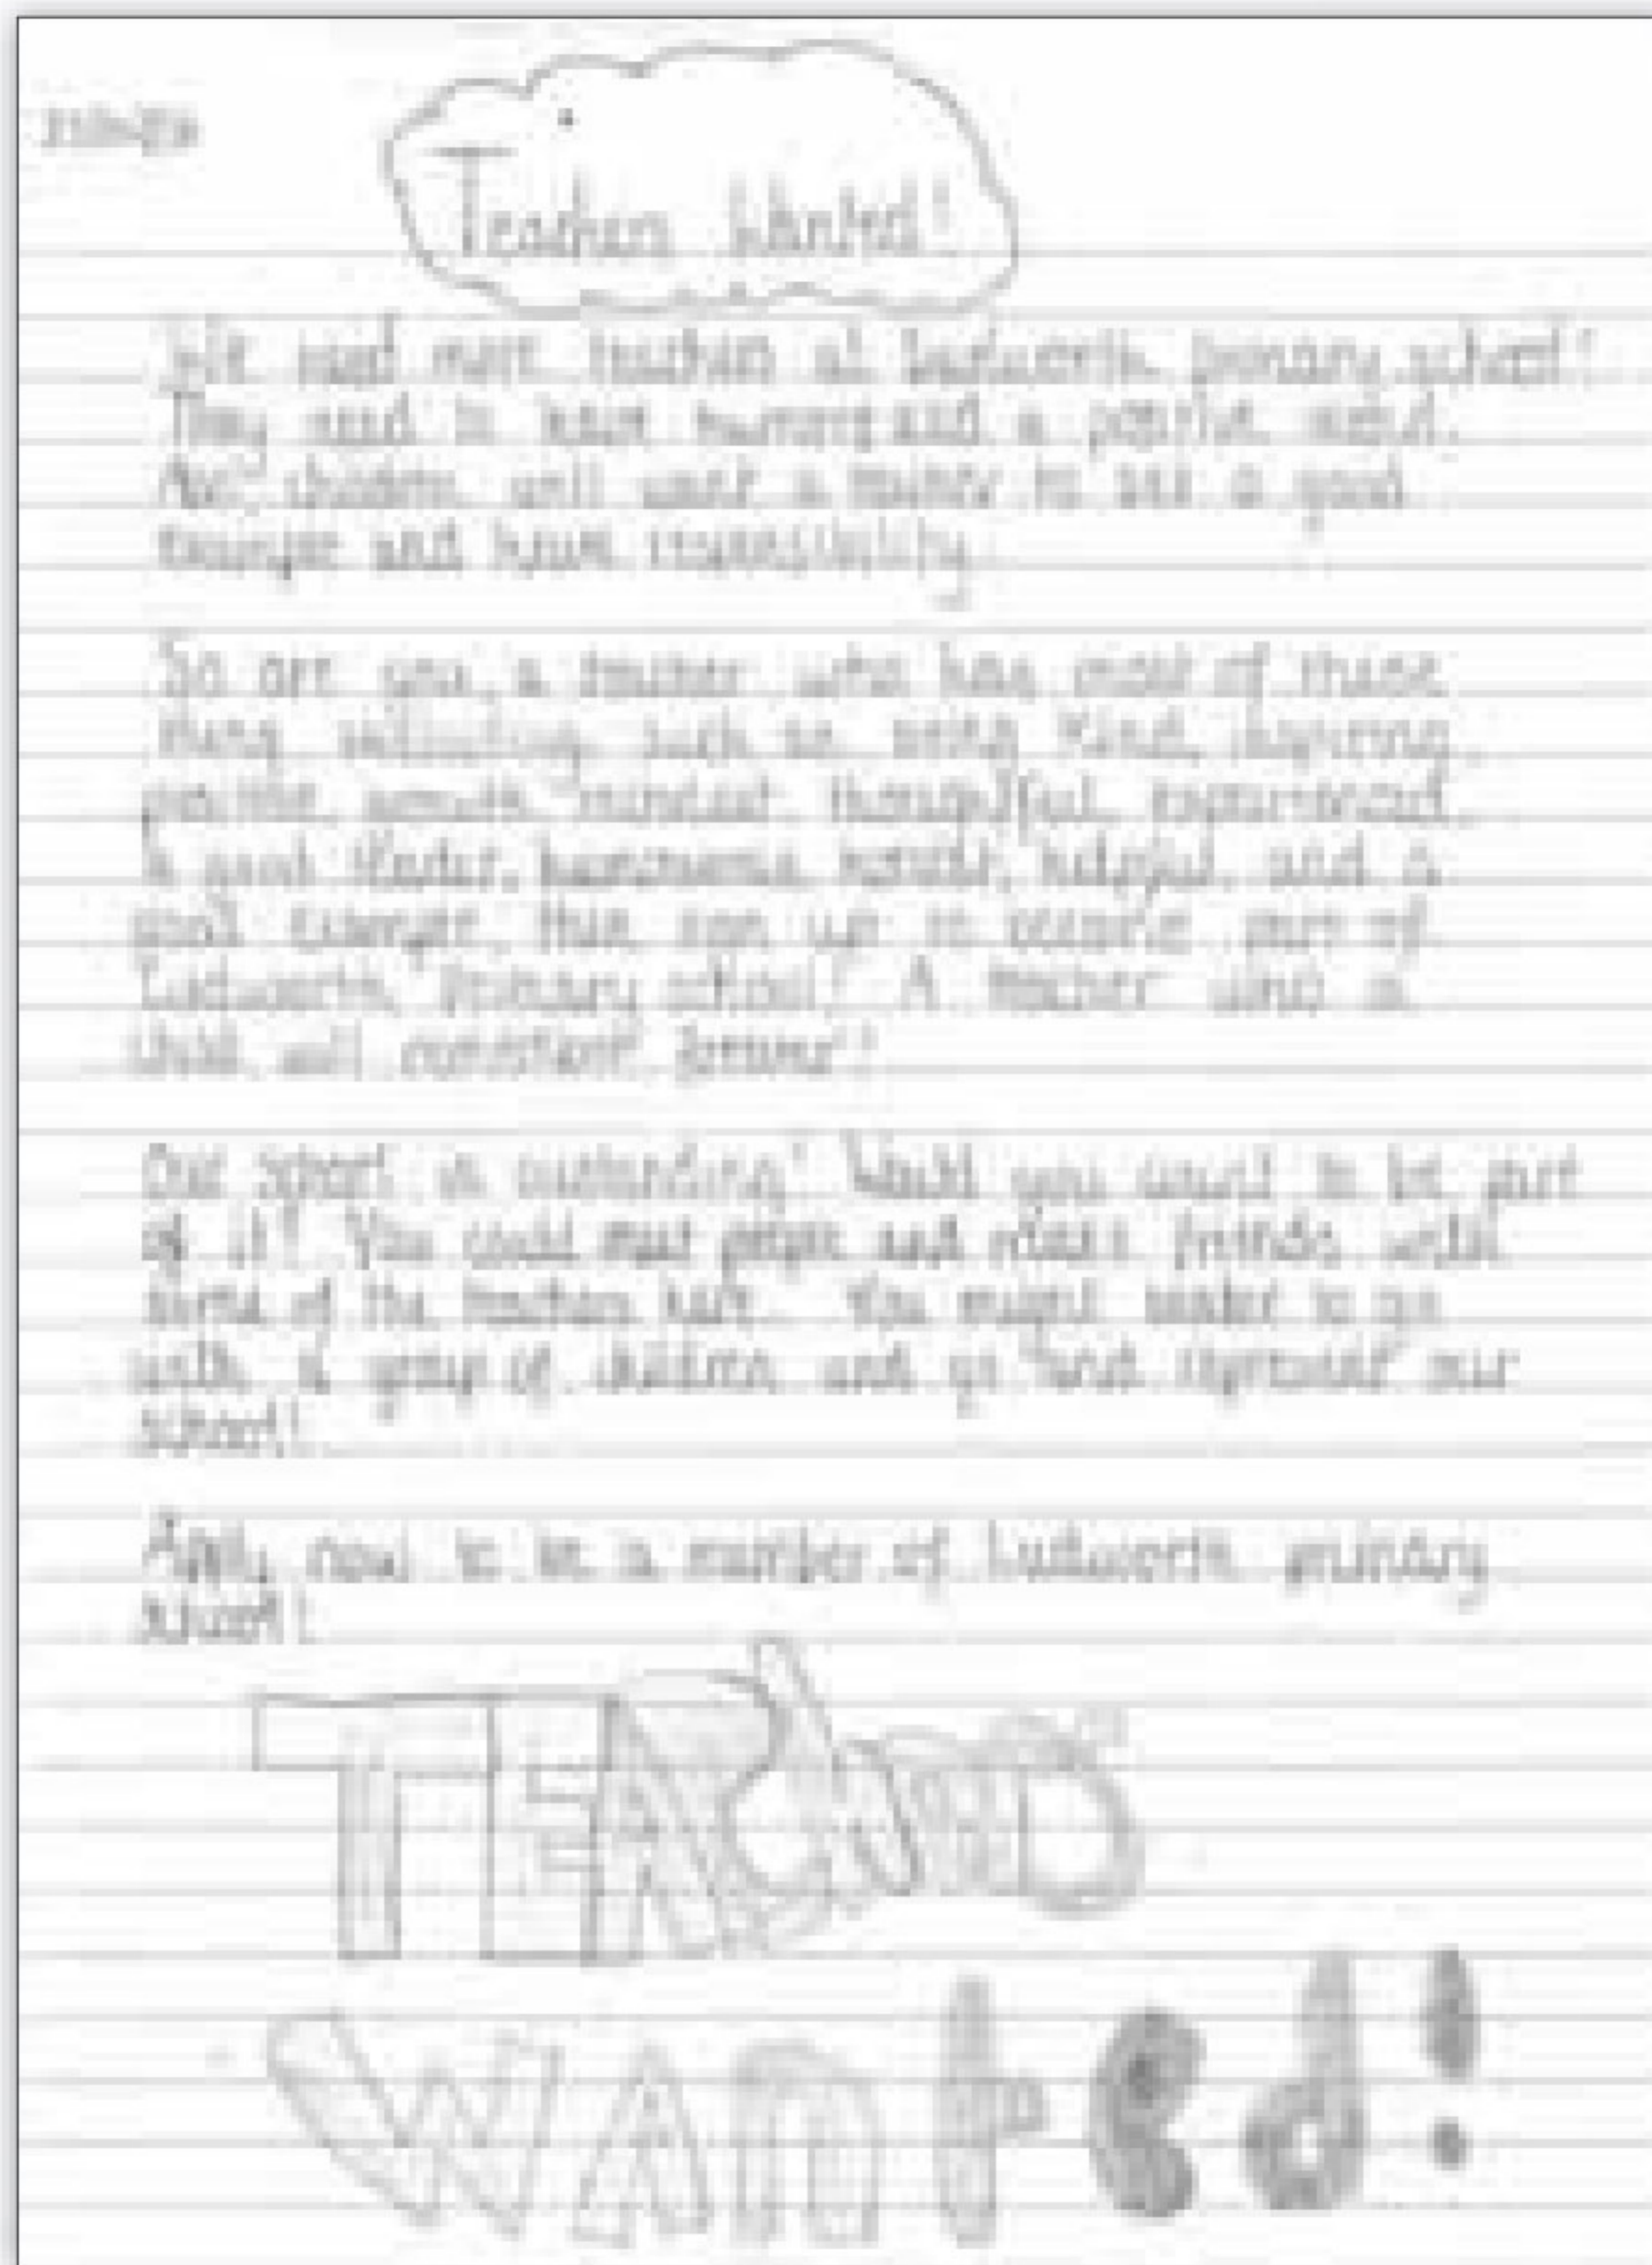 Teachers Wanted!
We need more teachers at Ludworth primary school!
They need to have humour and a positive mind.
children will want a teacher to set a good
example and have responsibility.
So are you a teacher who has most of these
things such as being kind, inspiring
positive, growth mindset, thoughtful, experienced,
a good leader, humourous, helpful, and a
good example, then sign up to become part of
Ludworth Primary school! A teacher who is
will forever!
Our school is outstanding! Would you want to be part
of it? You could meet people and make friends with
some of the teachers here. You might to go
with a group of children and go and represent our
school!
Apply now to be a member of Ludworth primary
school!
TEACHERS
WANted!